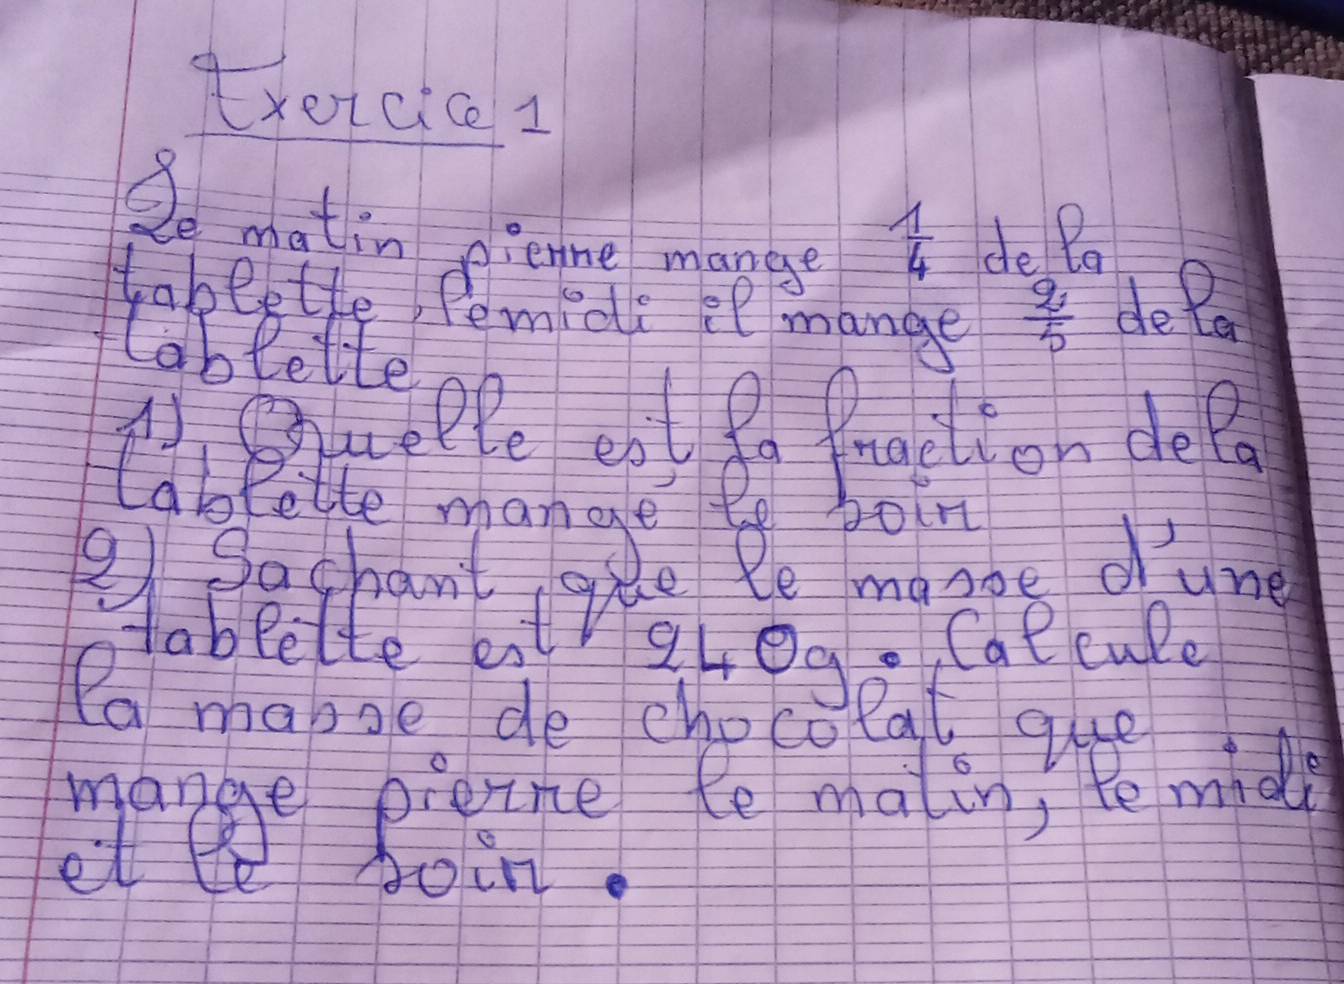 Exercice 1
Le matin pierre mange 1/4 de la
tablette, le midi il mange 2/5 de la
tablette
1) Quelle est la fraction de la
tablette mangé le soir
2) Sachant que le masse d'une
tablette est 240g. Calcule
la masse de chocolat que
mange pierre le matin, le midi
et le soir.